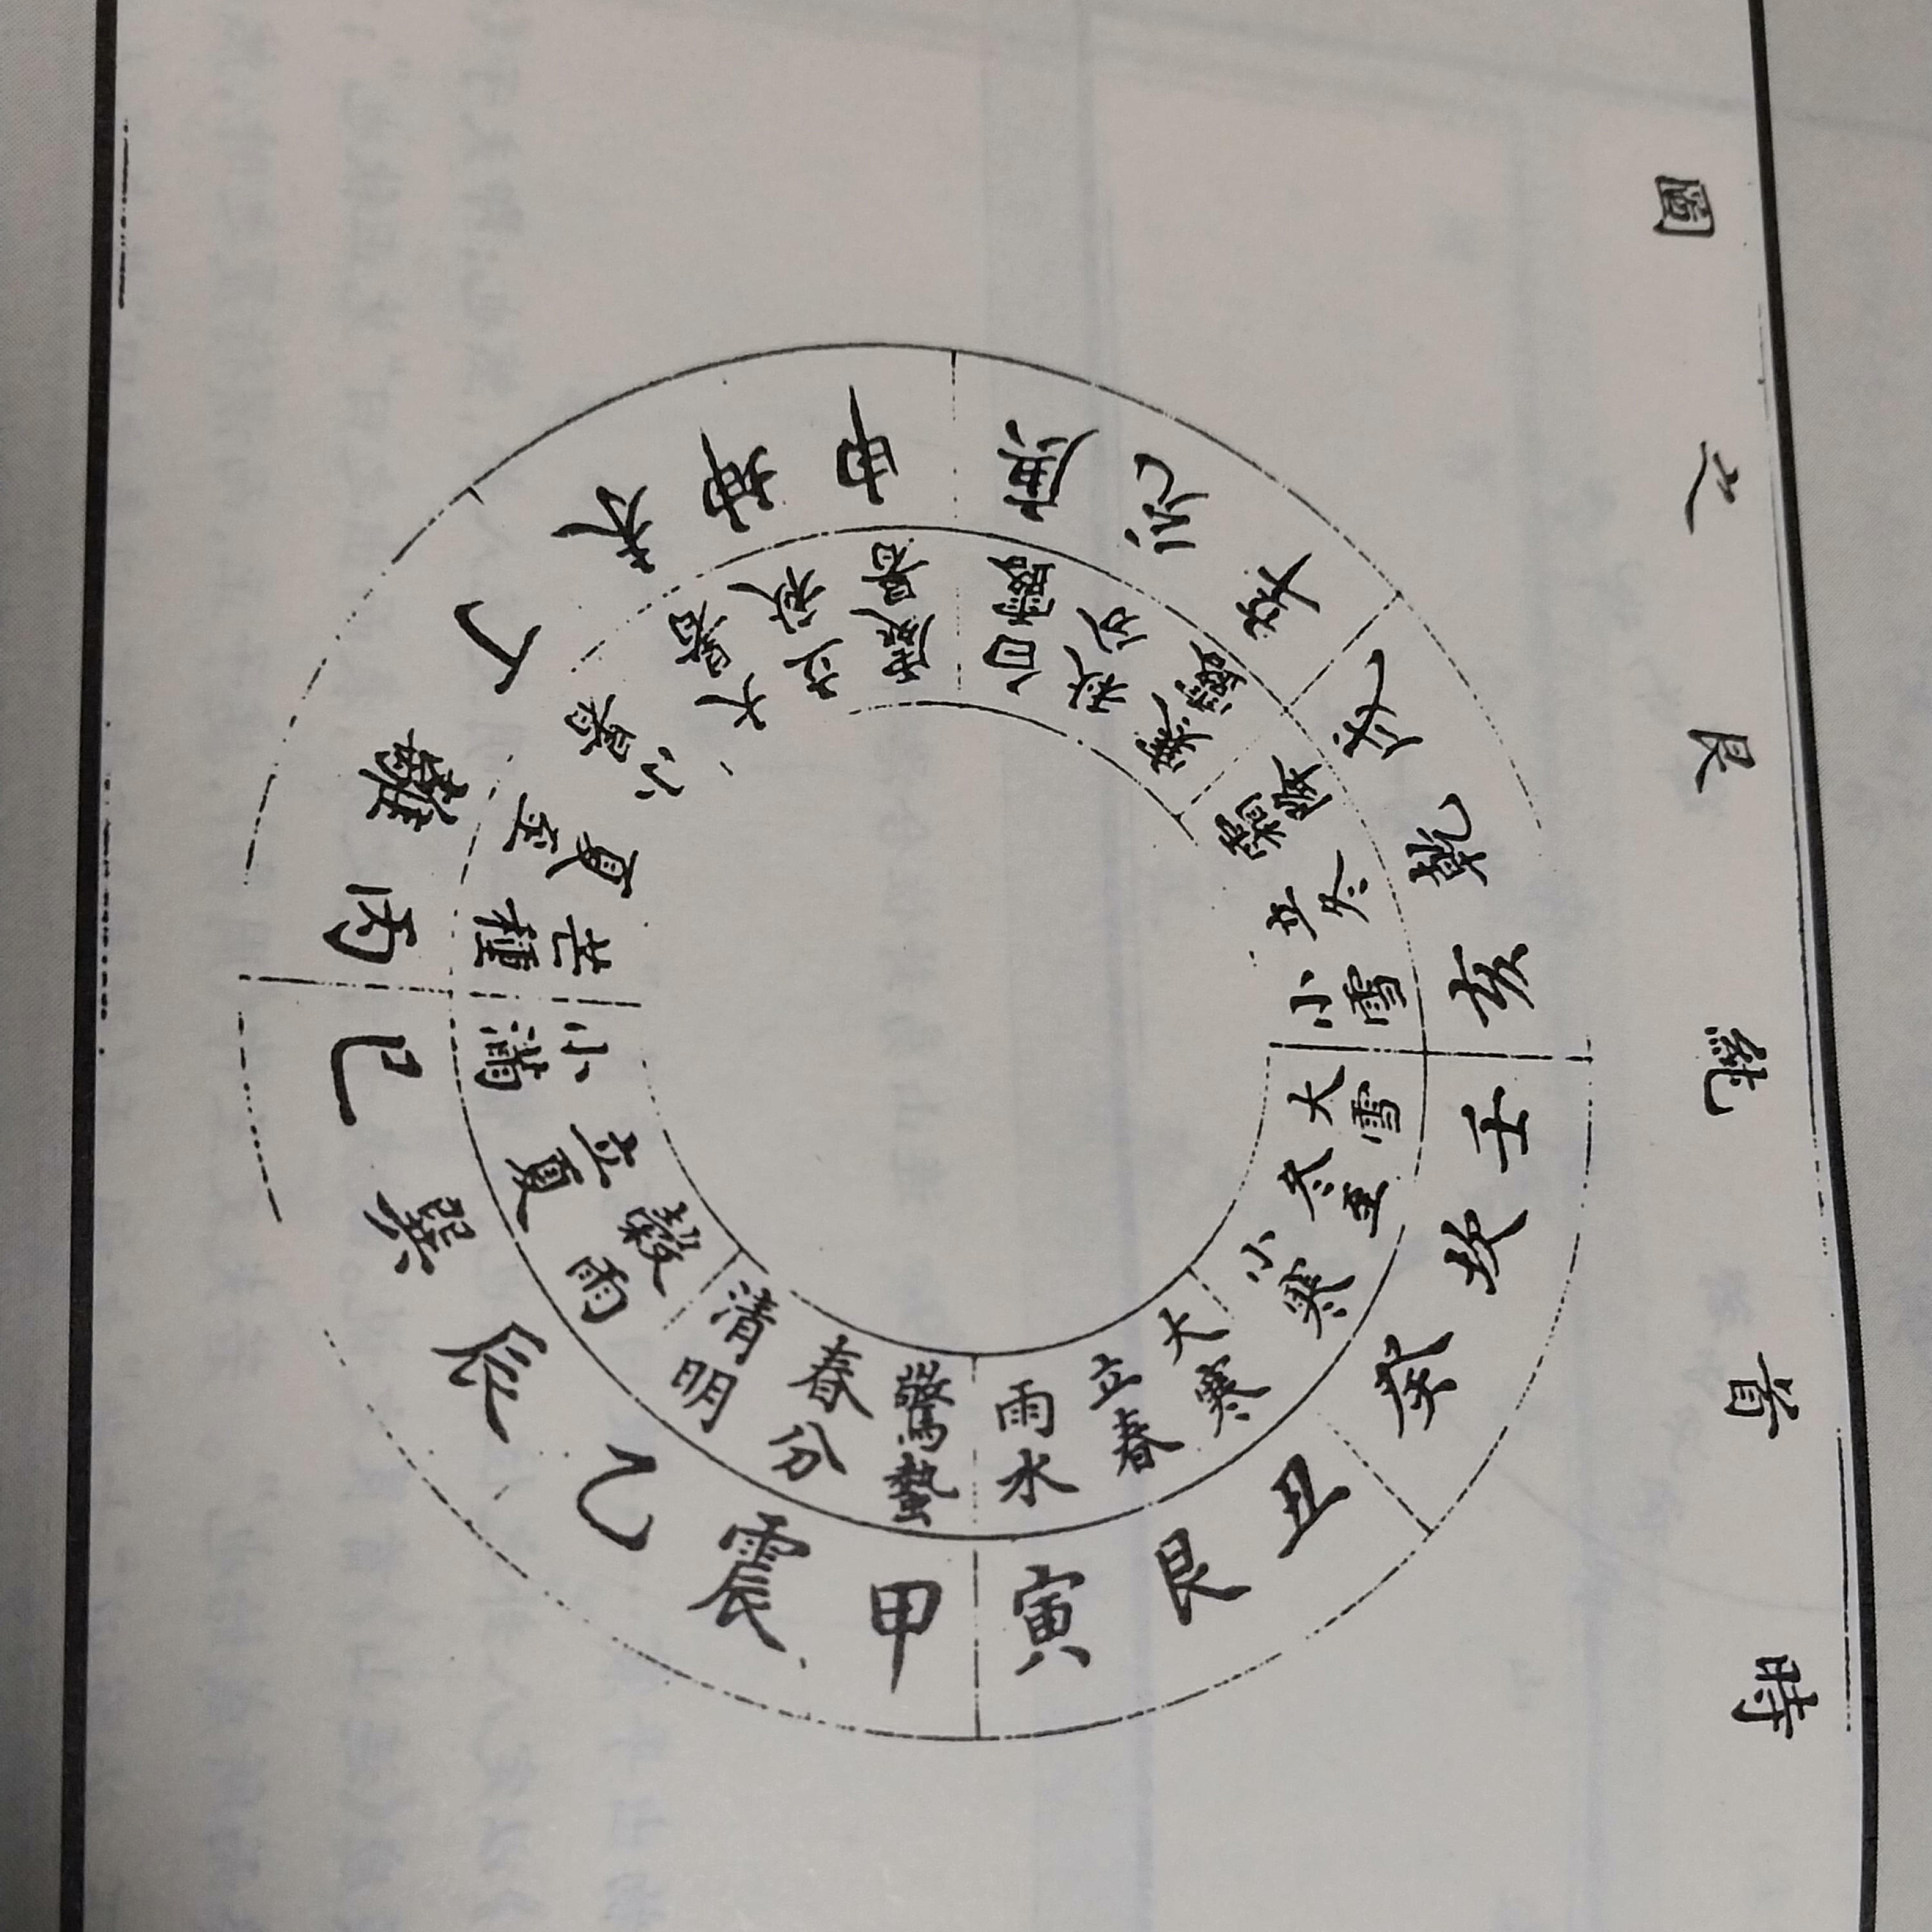 時首純艮之圖
壬
坎
癸
丑
艮
寅
甲
震
乙
辰
巽
巳
丙
離
丁
未
坤
申
庚
兌
辛
戌
乾
亥
大雪
冬至
小寒
大寒
立春
雨水
驚蟄
春分
清明
穀雨
立夏
小滿
芒種
夏至
小暑
大暑
立秋
處暑
白露
秋分
寒露
霜降
立冬
小雪